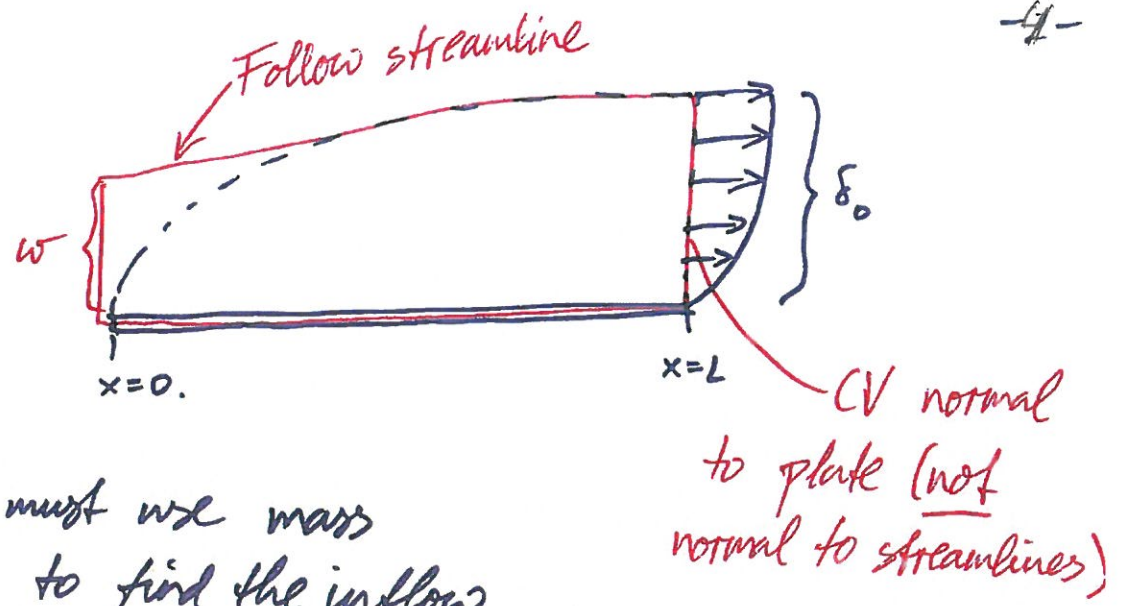 -4-
Follow streamline
w
δ₀
x=0.
x=L
CV normal
to plate (not
normal to streamlines)
must use mass
to find the inflow